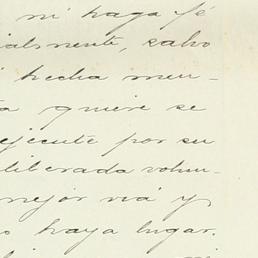 ni haga fé
ialmente, salvo
hecha men-
quiere se
ejecute por su
liberada volun-
mejor via y
o haya lugar.